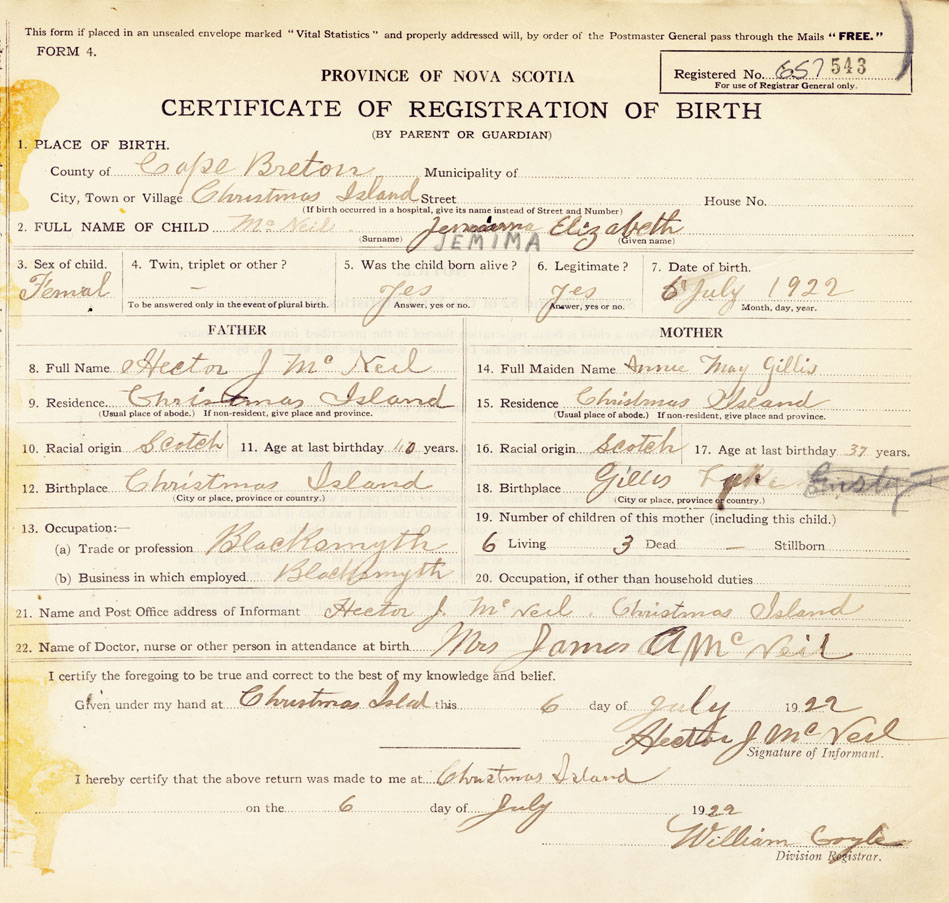 This form if placed in an unsealed envelope marked "Vital Statistics" and properly addressed will, by order of the Postmaster General pass through the Mails "FREE."
FORM 4.
Registered No. 657 543
For use of Registrar General only.
PROVINCE OF NOVA SCOTIA
CERTIFICATE OF REGISTRATION OF BIRTH
(BY PARENT OR GUARDIAN)
1. PLACE OF BIRTH.
County of Cape Breton Municipality of
City, Town or Village Christmas Island Street House No.
(If birth occurred in a hospital, give its name instead of Street and Number)
2. FULL NAME OF CHILD McNeil Elizabeth
(Surname) JEMIMA (Given name)
3. Sex of child. 4. Twin, triplet or other? 5. Was the child born alive? 6. Legitimate? 7. Date of birth.
Femal - Yes Yes 6 July 1922
To be answered only in the event of plural birth. Answer, yes or no. Answer, yes or no. Month, day, year.
FATHER MOTHER
8. Full Name Hector J McNeil 14. Full Maiden Name Annie May Gillis
9. Residence Christmas Island 15. Residence Christmas Island
(Usual place of abode.) If non-resident, give place and province. (Usual place of abode.) If non-resident, give place and province.
10. Racial origin Scotch 11. Age at last birthday 40 years. 16. Racial origin Scotch 17. Age at last birthday 37 years.
12. Birthplace Christmas Island 18. Birthplace Gillis
(City or place, province or country.) (City or place, province or country.)
13. Occupation:— 19. Number of children of this mother (including this child.)
(a) Trade or profession Blacksmyth 6 Living 3 Dead — Stillborn
(b) Business in which employed Blacksmyth 20. Occupation, if other than household duties
21. Name and Post Office address of Informant Hector J. McNeil. Christmas Island
22. Name of Doctor, nurse or other person in attendance at birth Mrs James A McNeil
I certify the foregoing to be true and correct to the best of my knowledge and belief.
Given under my hand at Christmas Islad this 6 day of July 1922
Hector J McNeil
Signature of Informant.
I hereby certify that the above return was made to me at Christmas Island
on the 6 day of July 1922
William Coyle
Division Registrar.